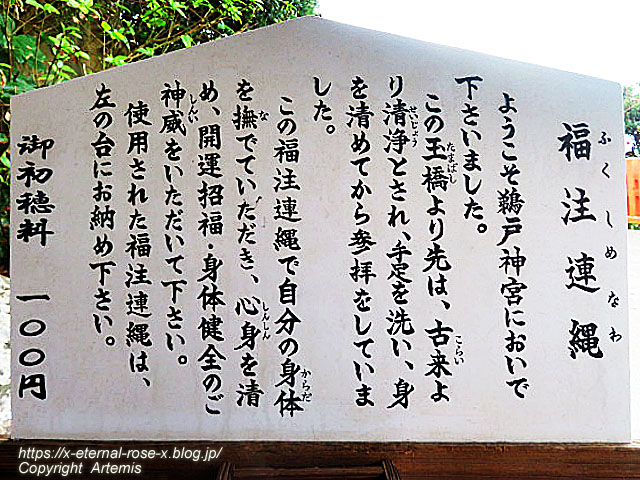 福注連縄
ふくしめなわ
ようこそ鵜戸神宮においで
下さいました。
この玉橋より先は、古来よ
たまばし
こらい
り清浄とされ、手足を洗い、身
せいじょう
を清めてから参拝をしていま
した。
この福注連縄で自分の身体
からだ
を撫でていただき、心身を清
な
しんしん
め、開運招福・身体健全のご
神威をいただいて下さい。
しんい
使用された福注連縄は、
左の台にお納め下さい。
御初穂料 一〇〇円
https://x-eternal-rose-x.blog.jp/
Copyright Artemis